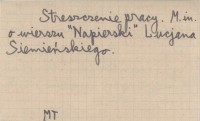 Streszczenie pracy. M.in.
o wierszu "Napierski" Lucjana
Siemieńskiego.
MT